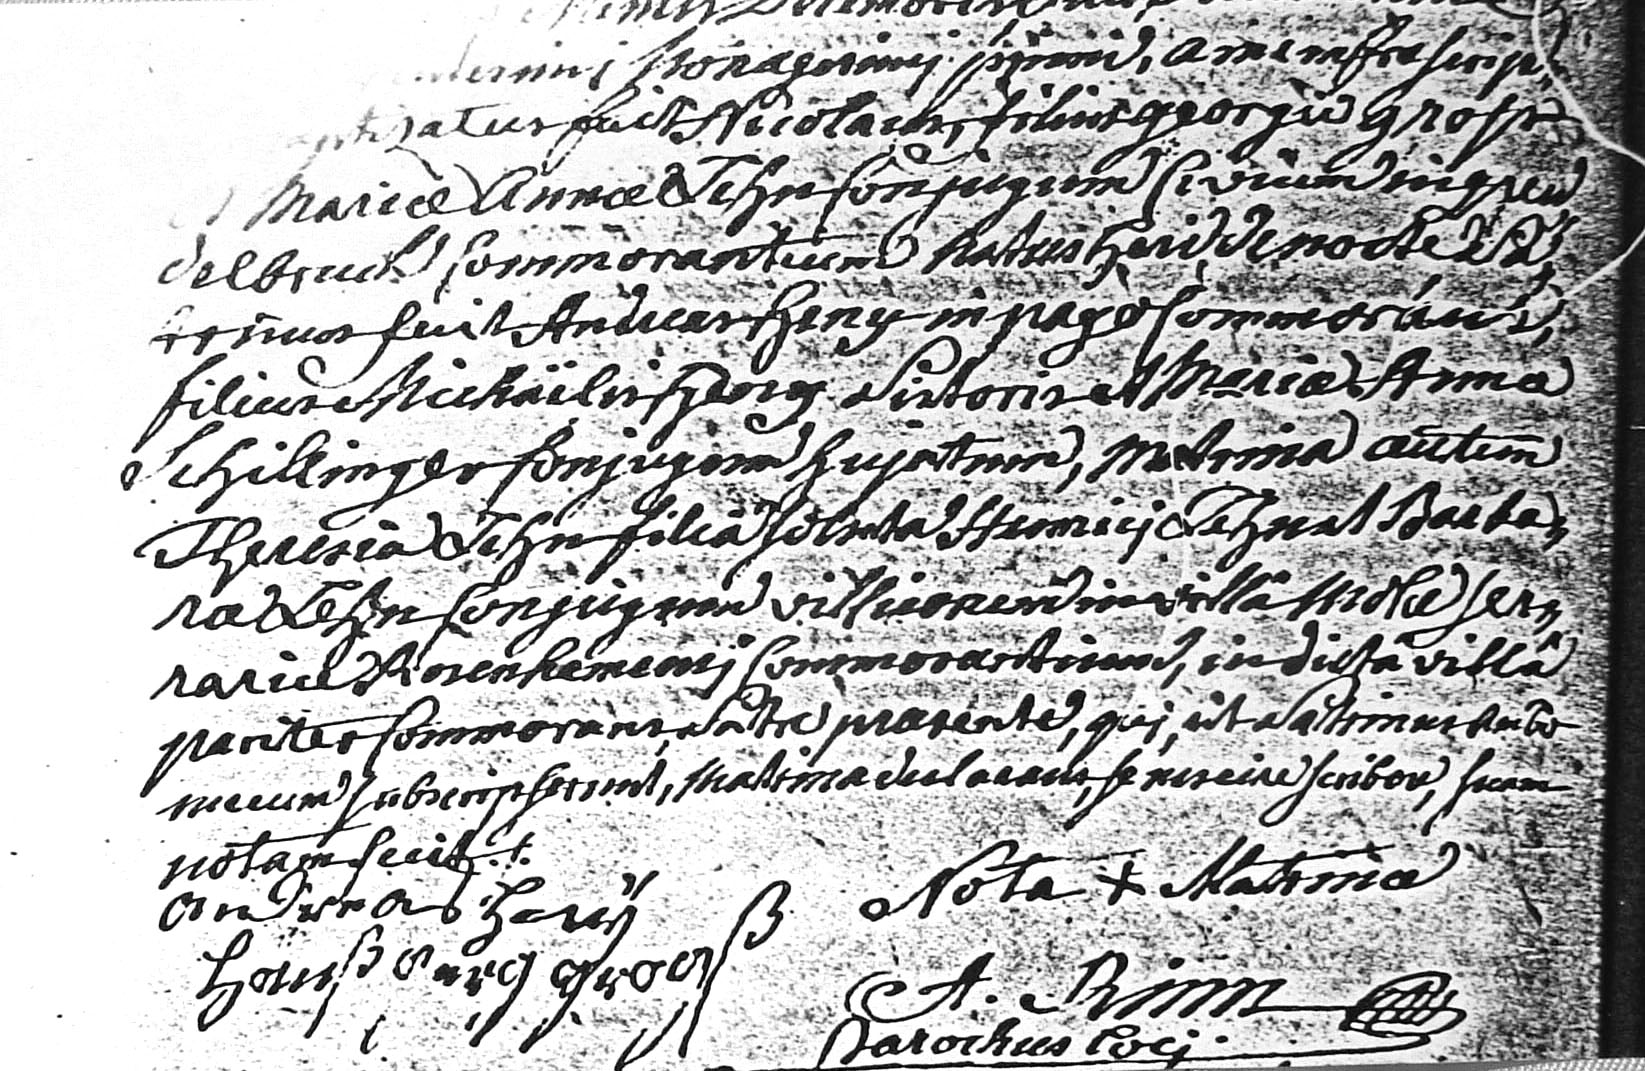 Decembris
Nonagesimi primi, a me infrascrip,
baptizatus fuit Nicolaus, filius georgii gross
et Mariæ Annæ Tehn Conjugum Civium in greu
delbruch Commorantium natus heri de nocte Pa,
trinus fuit Andreas Heny in pago Commorans,
filius Michäelis Heny Sutoris et Mariæ Annæ
Schillinger Conjugum hujatum, Matrina autem
Theresia Tehn filia soluta Henrici Tehn et Barba,
ræ Tehn Conjugum villicorum in villâ Nobæ
Commorantium, in dictâ villâ
pariter Commorans, Patre præsente, qui, ut Patrinus
mecum subscripserunt, Matrina declarans, se nescire scribere, suam
notam fecit.
andreas Henÿ
Hanß Georg groß
Nota + Matrinæ
A. Rinn
Parochus Loci